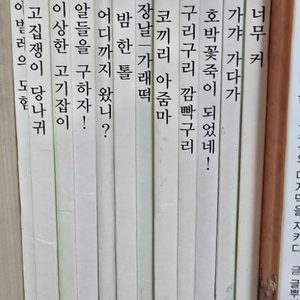 이 벌레의 모험
고집쟁이 당나귀
이상한 고기잡이
알들을 구하자!
어디까지 왔니?
밤 한 톨
장날 - 가래떡
코끼리 아줌마
구리구리 깜빡구리
호박꽃죽이 되었네!
가갸 가다가
너무 커